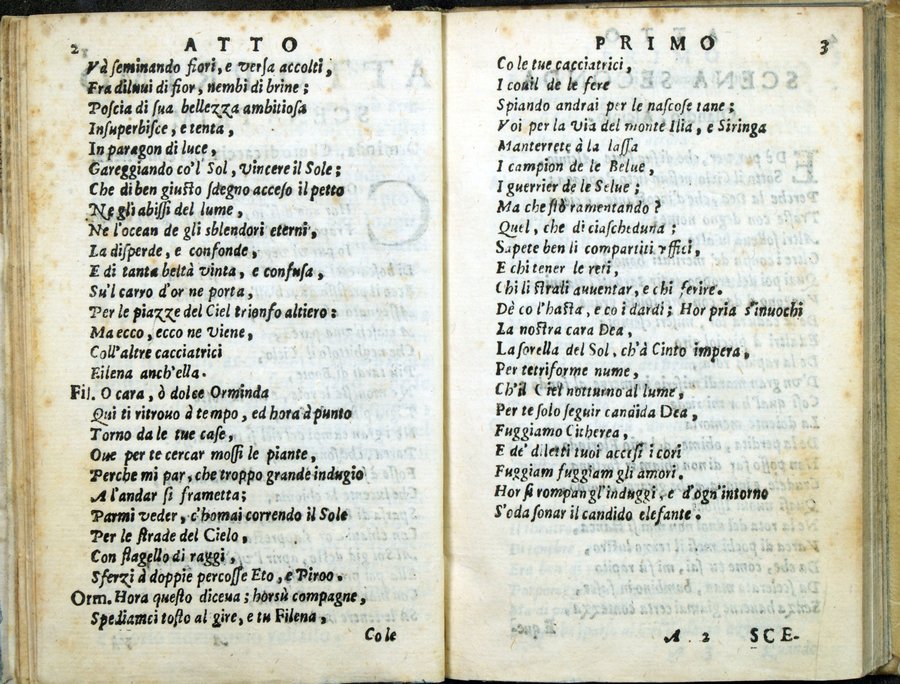 2 ATTO
Và seminando fiori, e versa accolti,
Fra diluui di fior, nembi di brine;
Poscia di sua bellezza ambitiosa
Insuperbisce, e tenta,
In paragon di luce,
Gareggiando co'l Sol, vincere il Sole;
Che di ben giusto sdegno acceso il petto
Ne gli abissi del lume,
Ne l'ocean de gli sblendori eterni,
La disperde, e confonde,
E di tanta beltà vinta, e confusa,
Su'l carro d'or ne porta,
Per le piazze del Ciel trionfo altiero:
Ma ecco, ecco ne viene,
Coll'altre cacciatrici
Eilena anch'ella.
Fil. O cara, ò dolce Orminda
Qui ti ritrouo à tempo, ed hora à punto
Torno da le tue case,
Oue per te cercar mossi le piante,
Perche mi par, che troppo grande indugio
A l'andar si frametta;
Parmi veder, c'homai correndo il Sole
Per le strade del Cielo,
Con flagello di raggi,
Sferzi à doppie percosse Eto, e Piroo.
Orm. Hora questo diceua; horsù compagne,
Spediamci tosto al gire, e tu Filena,
Co le
PRIMO 3
Co le tue cacciatrici,
I couil de le fere
Spiando andrai per le nascose tane;
Voi per la via del monte Ilia, e Siringa
Manterrete à la lassa
I campion de le Belue,
I guerrier de le Selue;
Ma che stò ramentando?
Quel, che di ciascheduna;
Sapete ben li compartiti vffici,
E chi tener le reti,
Chi li strali auuentar, e chi ferire.
Dè co l'hasta, e co i dardi; Hor pria s'inuochi
La nostra cara Dea,
La sorella del Sol, ch'à Cinto impera,
Per tetriforme nume,
Ch'il Ciel notturno al lume,
Per te solo seguir candida Dea,
Fuggiamo Citherea,
E de' diletti tuoi accesi i cori
Fuggiam fuggiam gli amori.
Hor si rompan gl'induggi, e d'ogn'intorno
S'oda sonar il candido elefante.
A 2 SCE-